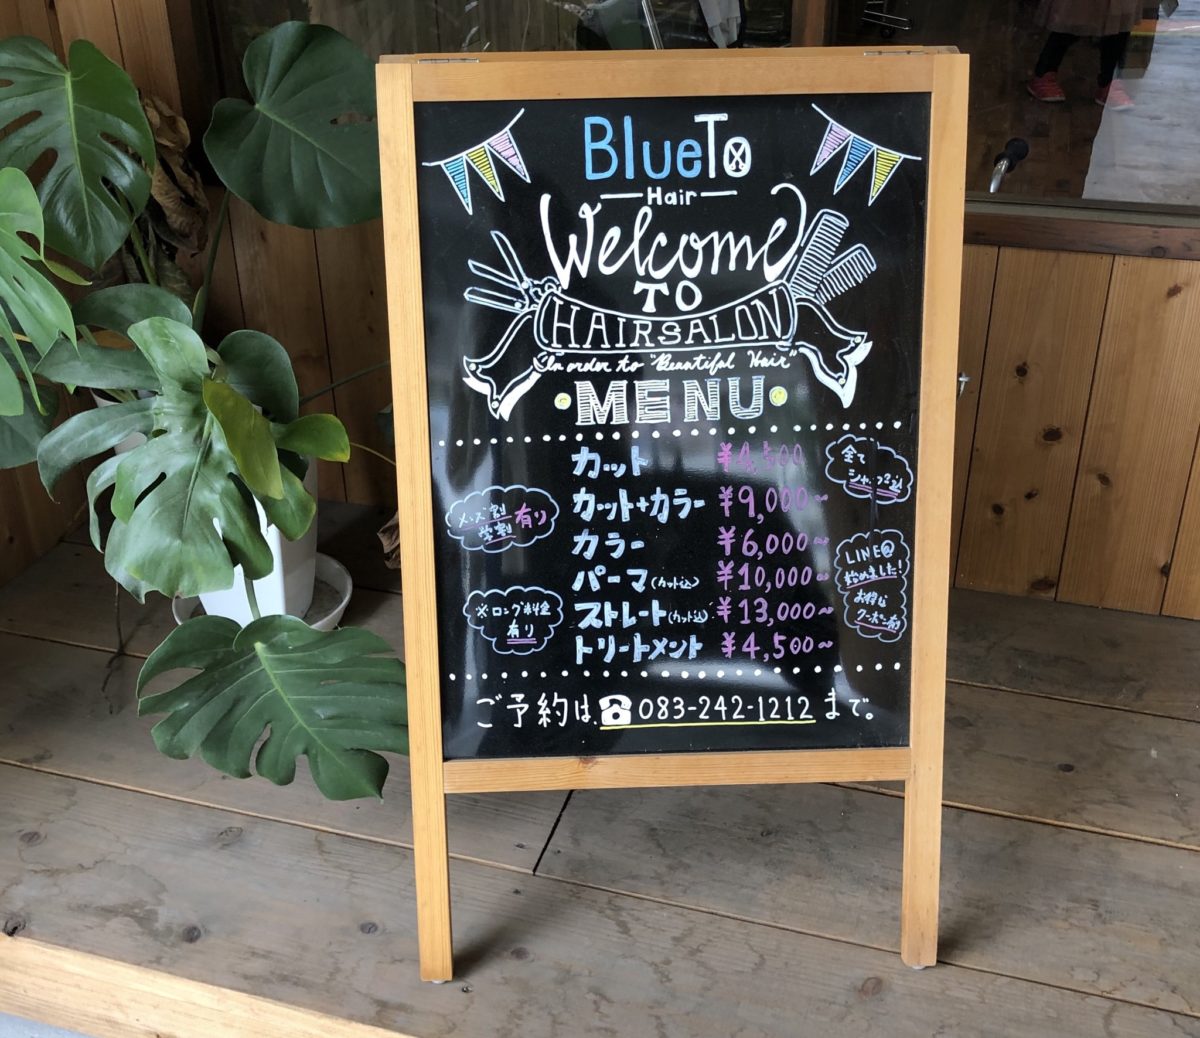 BlueTo
Hair
Welcome
TO
HAIRSALON
In order to "Beautiful Hair"
MENU
カット ¥4,500
カット+カラー ¥9,000~
カラー ¥6,000~
パーマ(カット込) ¥10,000~
ストレート(カット込) ¥13,000~
トリートメント ¥4,500~
メンズ割
学割
有り
※ロング料金
有り
全て
シャンプー込
LINE@
始めました!
お得な
クーポン有
ご予約は、☎083-242-1212まで。